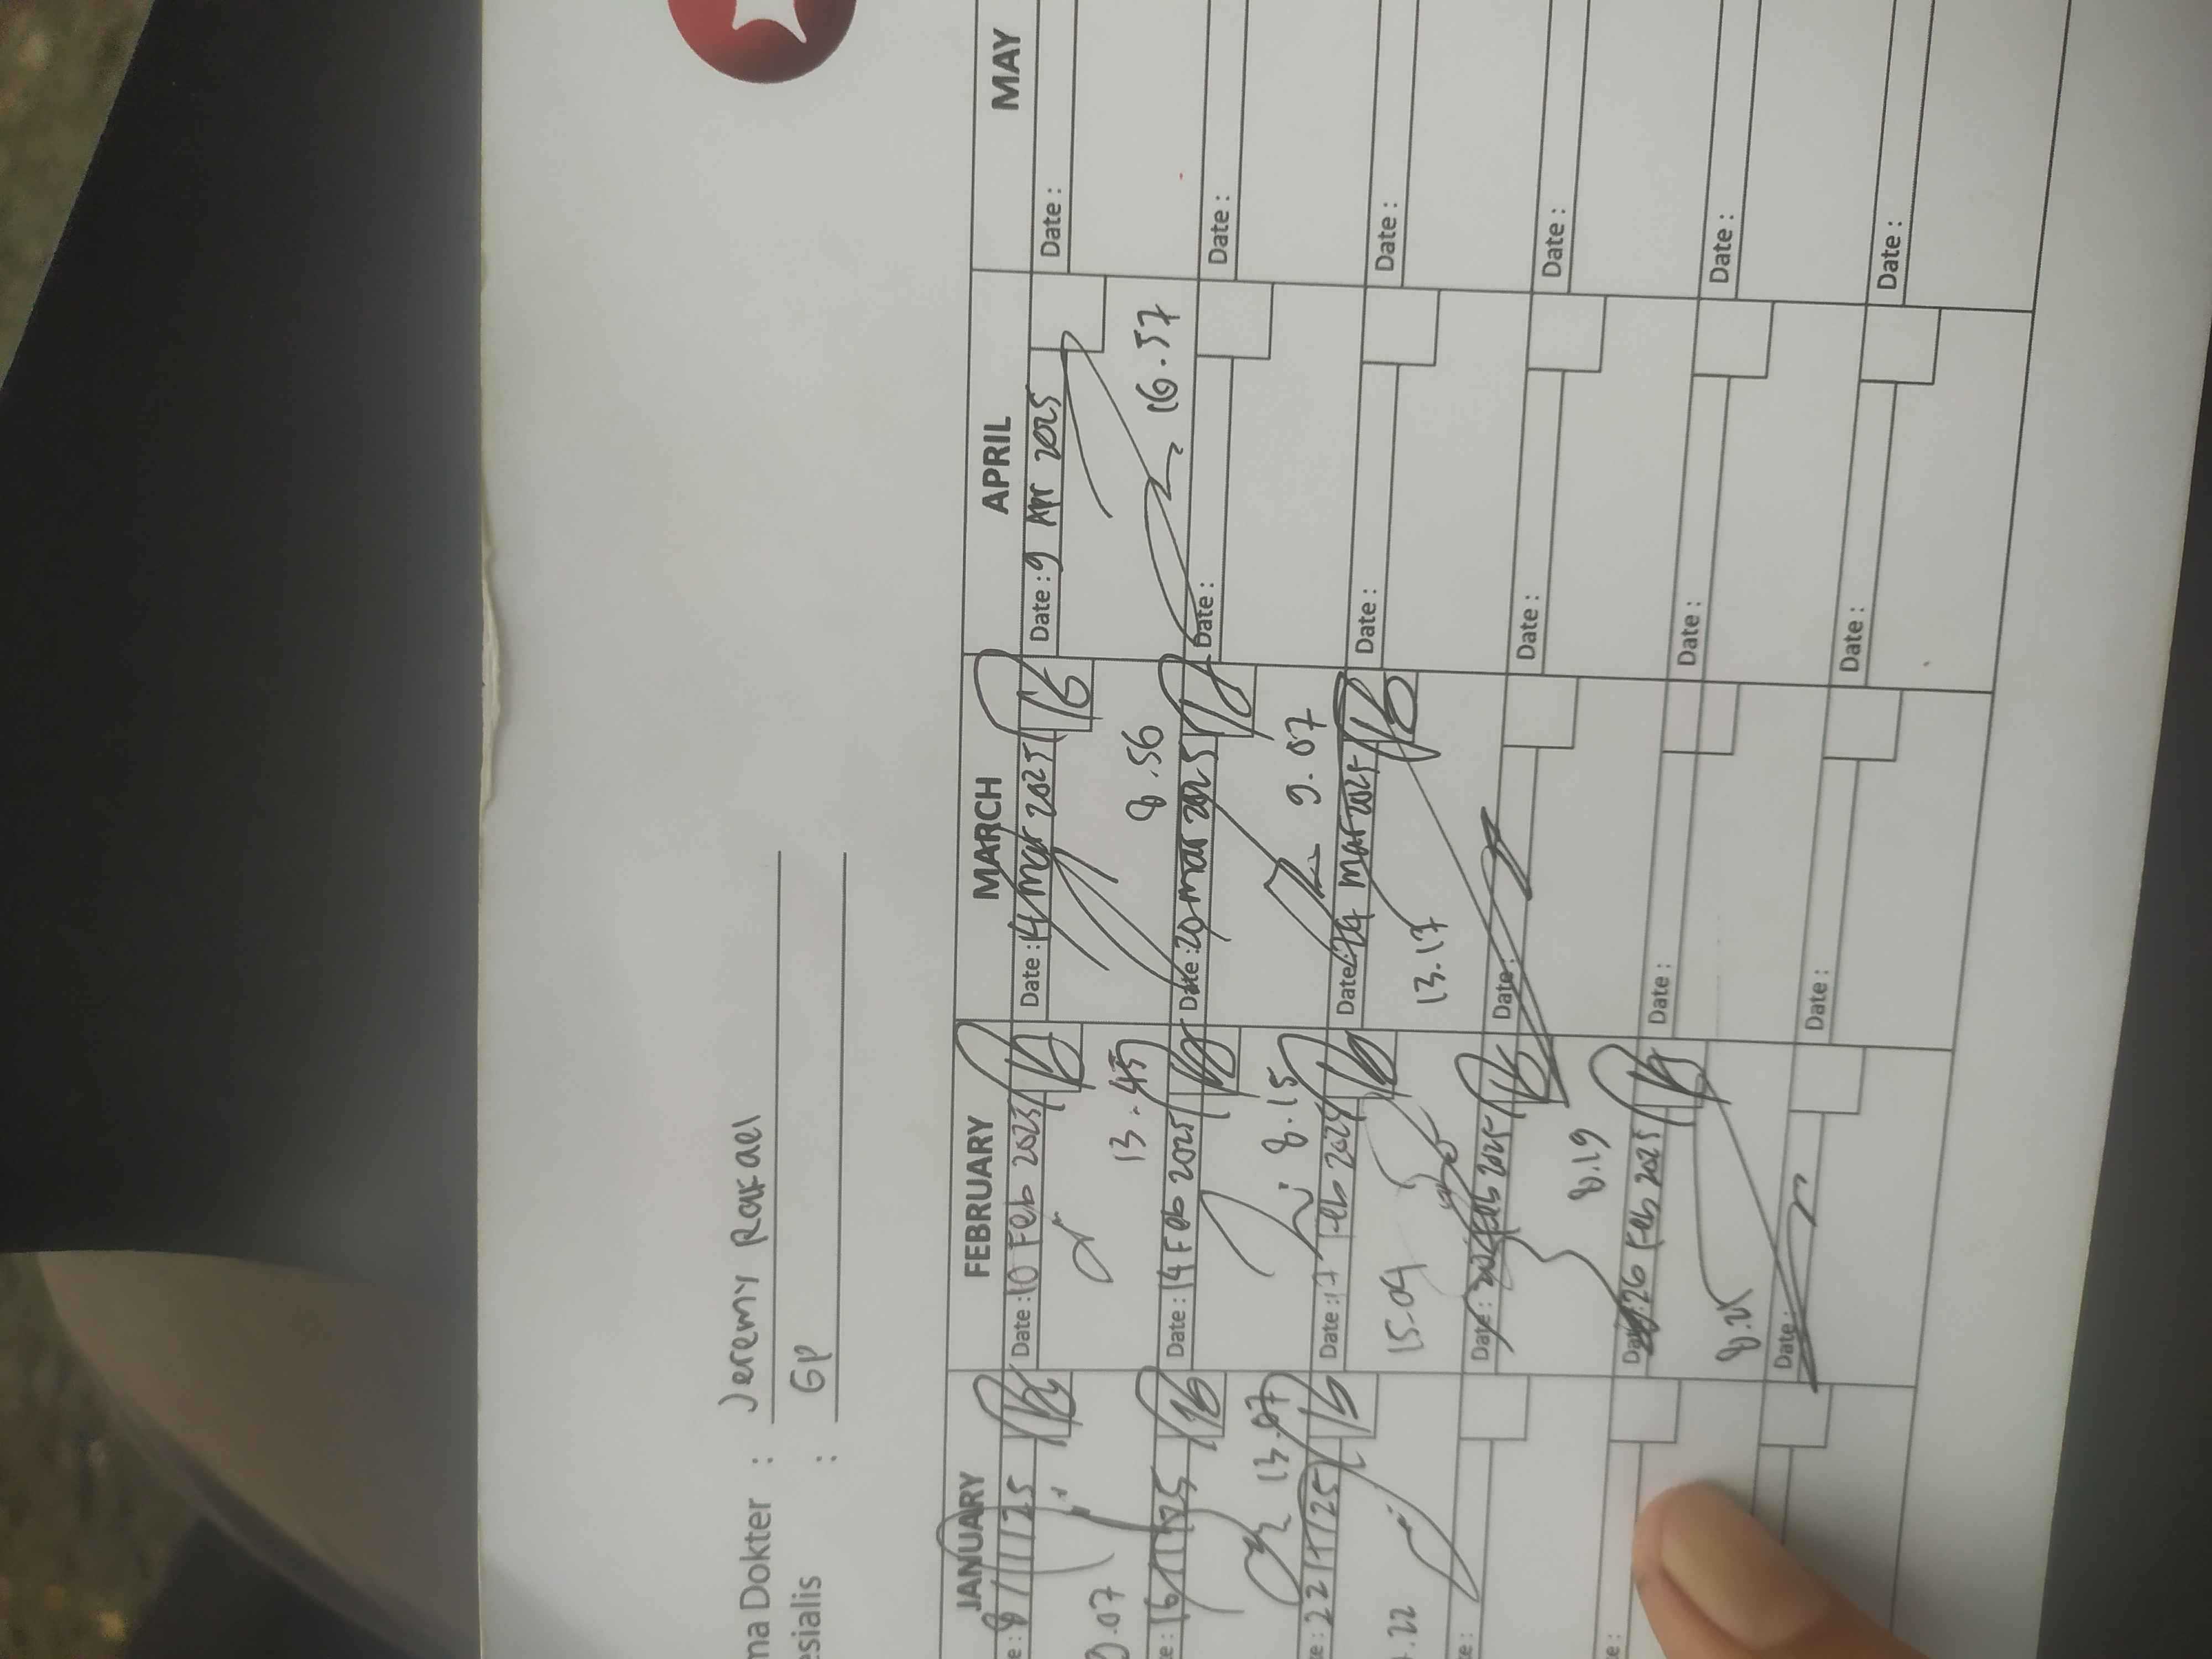 ma Dokter : Jeremy Rafael
esialis : GP
JANUARY FEBRUARY MARCH APRIL MAY
e : 8/1/25
Date : 10 Feb 2025
Date : 14 Mar 2025
Date : 9 Apr 2025
Date :
.07
13.45
8.56
16.57
te : 16/1/25
Date : 14 Feb 2025
Date : 20 mar 2025
Date :
Date :
13.07
8.15
9.07
te : 22/1/25
Date : 17 Feb 2025
Date : 24 mar 2025
Date :
Date :
.22
15.04
13.17
te :
Date : Feb 2025
Date :
Date :
Date :
8.19
te :
Date : 26 Feb 2025
Date :
Date :
Date :
Date :
Date :
Date :
Date :